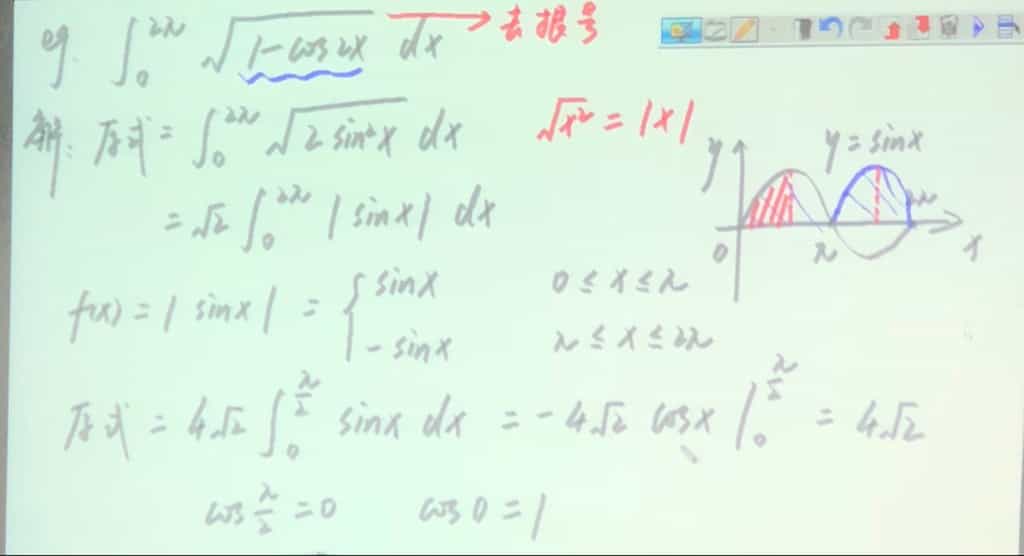 eg. ∫₀^{2π} √(1-cos2x) dx → 去根号
解: 原式 = ∫₀^{2π} √(2sin²x) dx
√x² = |x|
= √2 ∫₀^{2π} |sinx| dx
y y=sinx
0 π 2π x
f(x) = |sinx| = { sinx 0≤x≤π
-sinx π≤x≤2π
原式 = 4√2 ∫₀^{π/2} sinx dx = -4√2 cosx |₀^{π/2} = 4√2
cos π/2 = 0 cos0 = 1